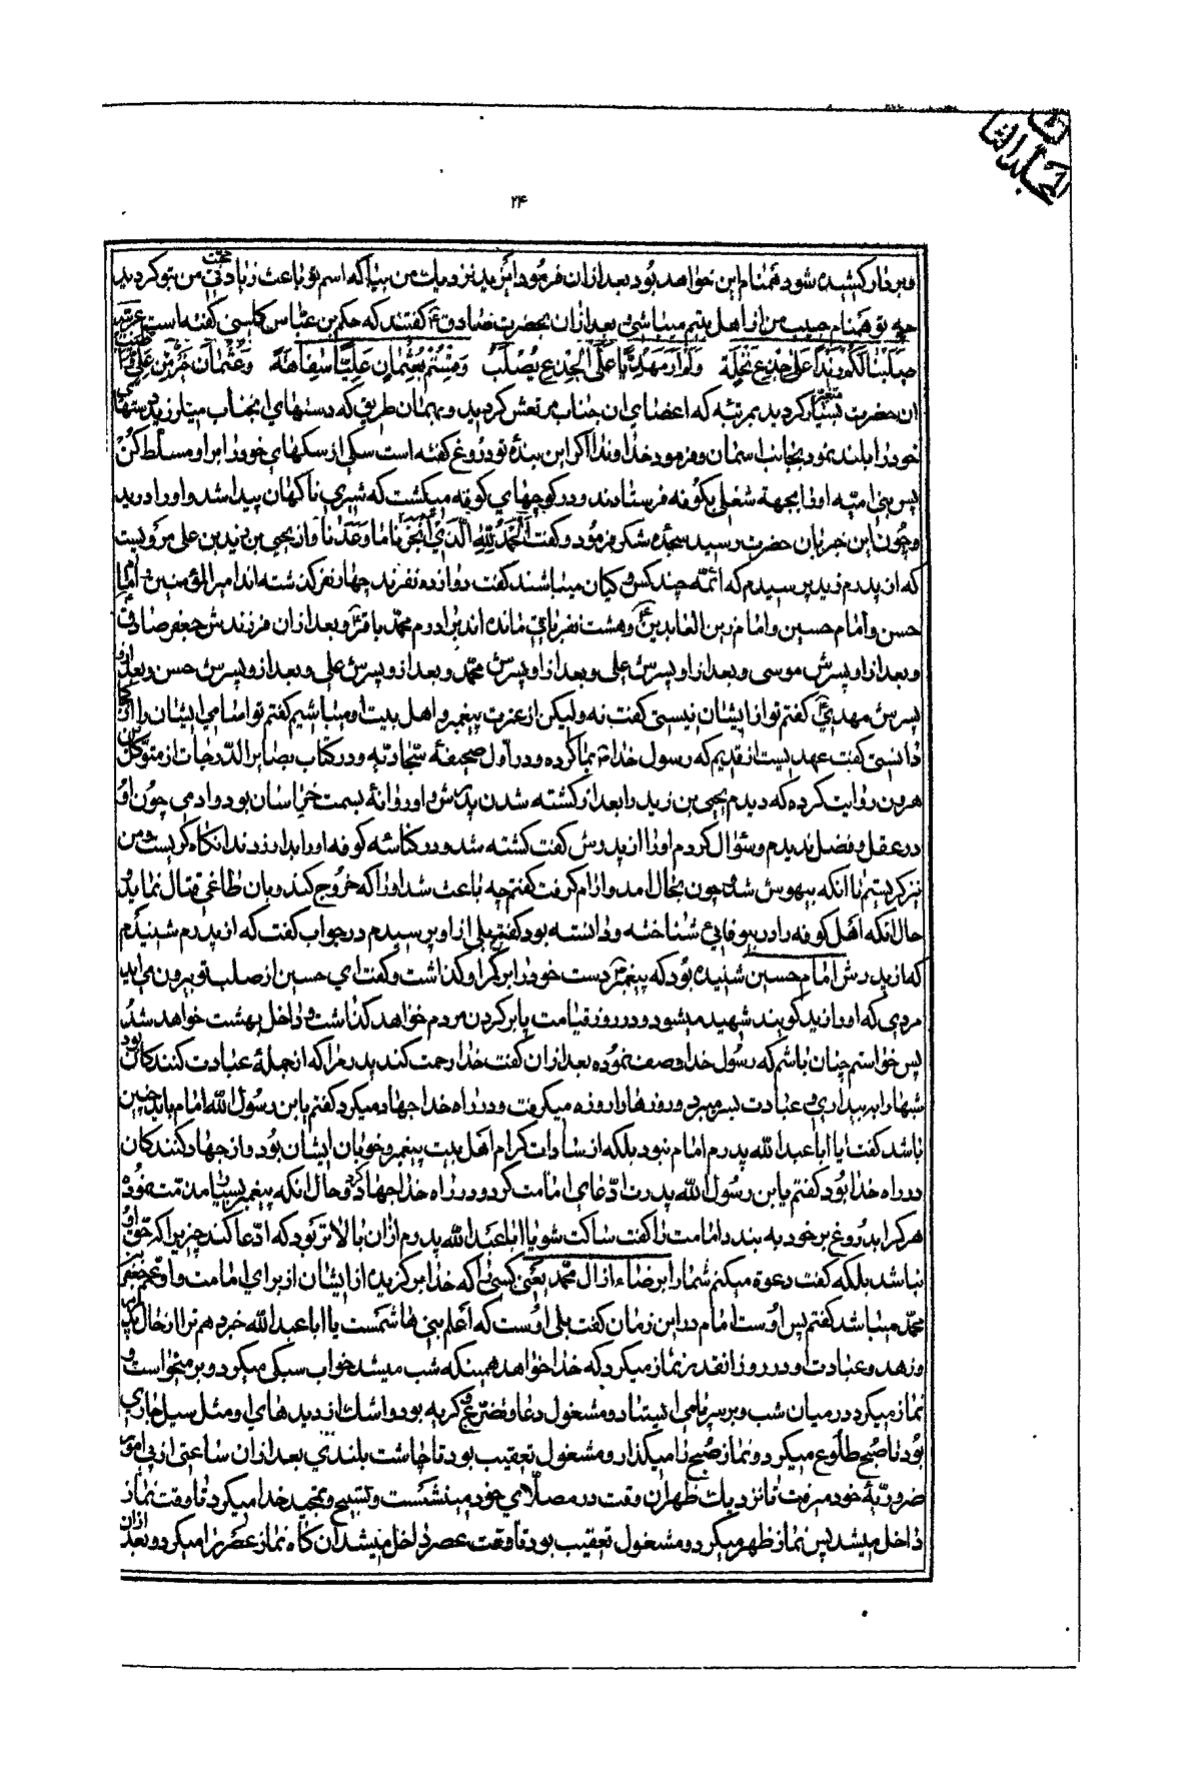 المجلد الثالث
۲۴
وبردار کشیده شود همنام این خواهد بود بعد ازان فرمود ای زید نزدیک من بیا که اسم تو باعث زیادتی محبت من بتو کردید
چه تو همنام حبیب من از اهل بیتم میباشی و بعد ازان بحضرت صادق ع کفتند که حکم بن عباس کلبی کفته است عربیه
صلبنا لکم زیدا علی جذع نخلة ولم ار مهدیا علی الجذع یصلب وقستم بعثمان علیا سفاهة وعثمان خیر من علی واطیب
ان حضرت بسیار متغیر کردید بمرتبه که اعضای ان جناب مرتعش کردید و بهمان طریق که دستهای انجناب میلرزید دستهای
خود را بلند نمود بجانب اسمان و فرمود خداوندا اکر این بنده تو دروغ کفته است سکی از سکهای خود را بر او مسلط کن
پس بنی امیه او را بجهة شغلی بکوفه فرستادند و در کوچهای کوفه میکشت که شیری ناکهان پیدا شد و او را درید
و چون این خبر بان حضرت رسید سجده شکر فرمود و کفت الحمد لله الذی انجزنا ما وعدنا و از یحیی بن زید بن علی مرویست
که از پدرم زید پرسیدم که ائمه چند کس و کیان میباشند کفت دوازده نفرند چهار نفر کذشته اند امیر المؤمنین و امام
حسن و امام حسین و امام زین العابدین ع و هشت نفر باقی مانده اند برادرم محمد باقر ع و بعد ازان فرزندش جعفر صادق
و بعد از او پسرش موسی و بعد از او پسرش علی و بعد از او پسرش محمد و بعد از و پسرش علی و بعد از و پسرش حسن و بعد از او
پسرش مهدی ع کفتم تو از ایشان نیستی کفت نه ولیکن از عترت پیغمبر و اهل بیت او میباشیم کفتم تو اسامی ایشان را از کجا
دانستی کفت عهدیست از قدیم که رسول خدا بما کرده و در اول صحیفه سجادیه و در کتاب بصایر الدرجات از متوکل بن
هرون روایت کرده که دیدم یحیی بن زید را بعد از کشته شدن پدرش و او روانه بسمت خراسان بود و ادمی چون او
در عقل و فضل ندیدم و سؤال کردم او را از پدرش کفت کشته شد و در کناسه کوفه او را بدار زدند انکاه کریست و من
نیز کریستم تا انکه بیهوش شد و چون بحال امد و ارام کرفت کفتم چه باعث شد او را که خروج کند و بان طاغی قتال نماید و
حال انکه اهل کوفه را در بیوفائی شناخته و دانسته بود کفت بلی از او پرسیدم در جواب کفت که از پدرم شنیدم
که از پدرش امام حسین شنیده بود که پیغمبر دست خود را بر کمر او کذاشت و کفت ای حسین از صلب تو بیرون می اید
مردی که او را زید کویند شهید میشود و در روز قیامت پا بر کردن مردم خواهد کذاشت و داخل بهشت خواهد شد
پس خواستم چنان باشم که رسول خدا وصف نموده بعد ازان کفت خدا رحمت کند پدر مرا که از جمله عبادت کنندکان بود
شبها را به بیداری و عبادت بسر میبرد و روزها را روزه میکرفت و در راه خدا جهاد میکرد کفتم یابن رسول الله امام باید چنین
باشد کفت یا ابا عبد الله پدرم امام نبود بلکه از سادات کرام اهل بیت پیغمبر و خوبان ایشان بود و از جهاد کنندکان
در راه خدا بود کفتم یابن رسول الله پدرت ادعای امامت کرد و در راه خدا جهاد کرد و حال انکه پیغمبر بسیار مذمت نموده
هر کرا بدروغ بر خود به بندد امامت را کفت ساکت شو یا ابا عبد الله پدرم ازان بالاتر بود که ادعا کند چیزیرا که حق او
نباشد بلکه کفت دعوة میکنم شما را برضاء از ال محمد یعنی کسی را که خدا برکزیده از ایشان از برای امامت و او عمم جعفر بن
محمد میباشد کفتم پس اوست امام در این زمان کفت بلی اوست که اعلم بنی هاشمست یا ابا عبد الله خبر دهم ترا از حال پدرم
و زهد و عبادت او در روز انقدر نماز میکرد که خدا خواهد همینکه شب میشد خواب سبکی میکرد و بر میخواست و
نماز میکرد در میان شب و بر سر پا می ایستاد و مشغول دعا و تضرع و کریه بود و اشک از دیدهای او مثل سیل جاری
بود تا صبح طلوع میکرد و نماز صبح را میکذارد و مشغول تعقیب بود تا چاشت بلندی بعد ازان ساعتی از پی امور
ضروریه خود میرفت تا نزدیک ظهر ان وقت در مصلای خود مینشست و تسبیح و تمجید خدا میکرد تا وقت نماز
داخل میشد پس نماز ظهر میکرد و مشغول تعقیب بود تا وقت عصر داخل میشد ان کاه نماز عصر را میکرد و بعد ازان